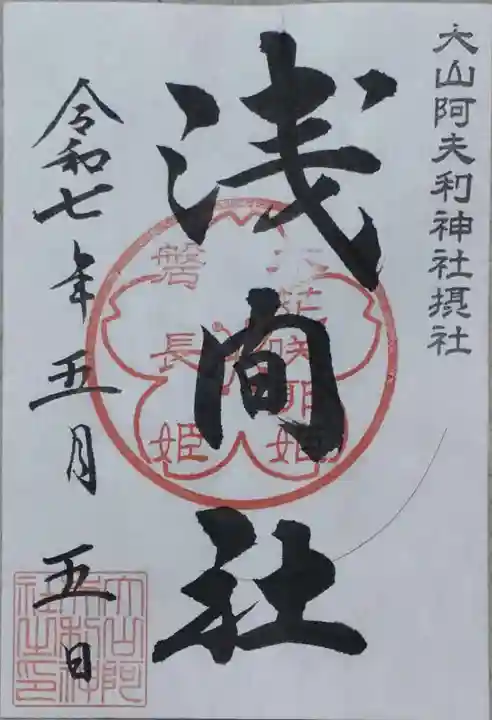 大山阿夫利神社摂社
浅間社
木花咲耶姫
磐長姫
令和七年五月五日
大山阿
夫利神
社之印